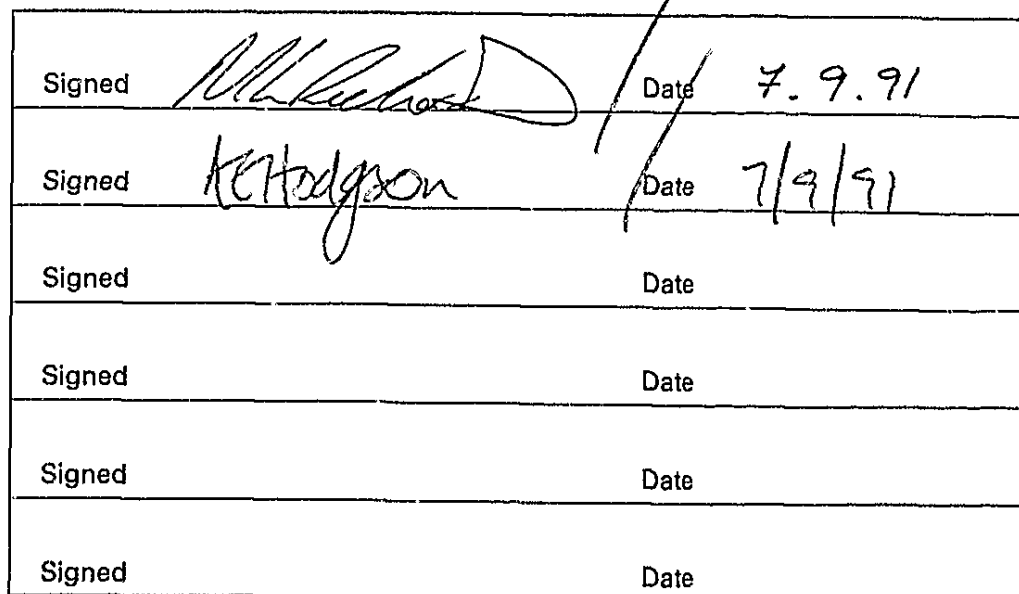 Signed Date 7.9.91
Signed KCHodgson Date 7/9/91
Signed Date
Signed Date
Signed Date
Signed Date